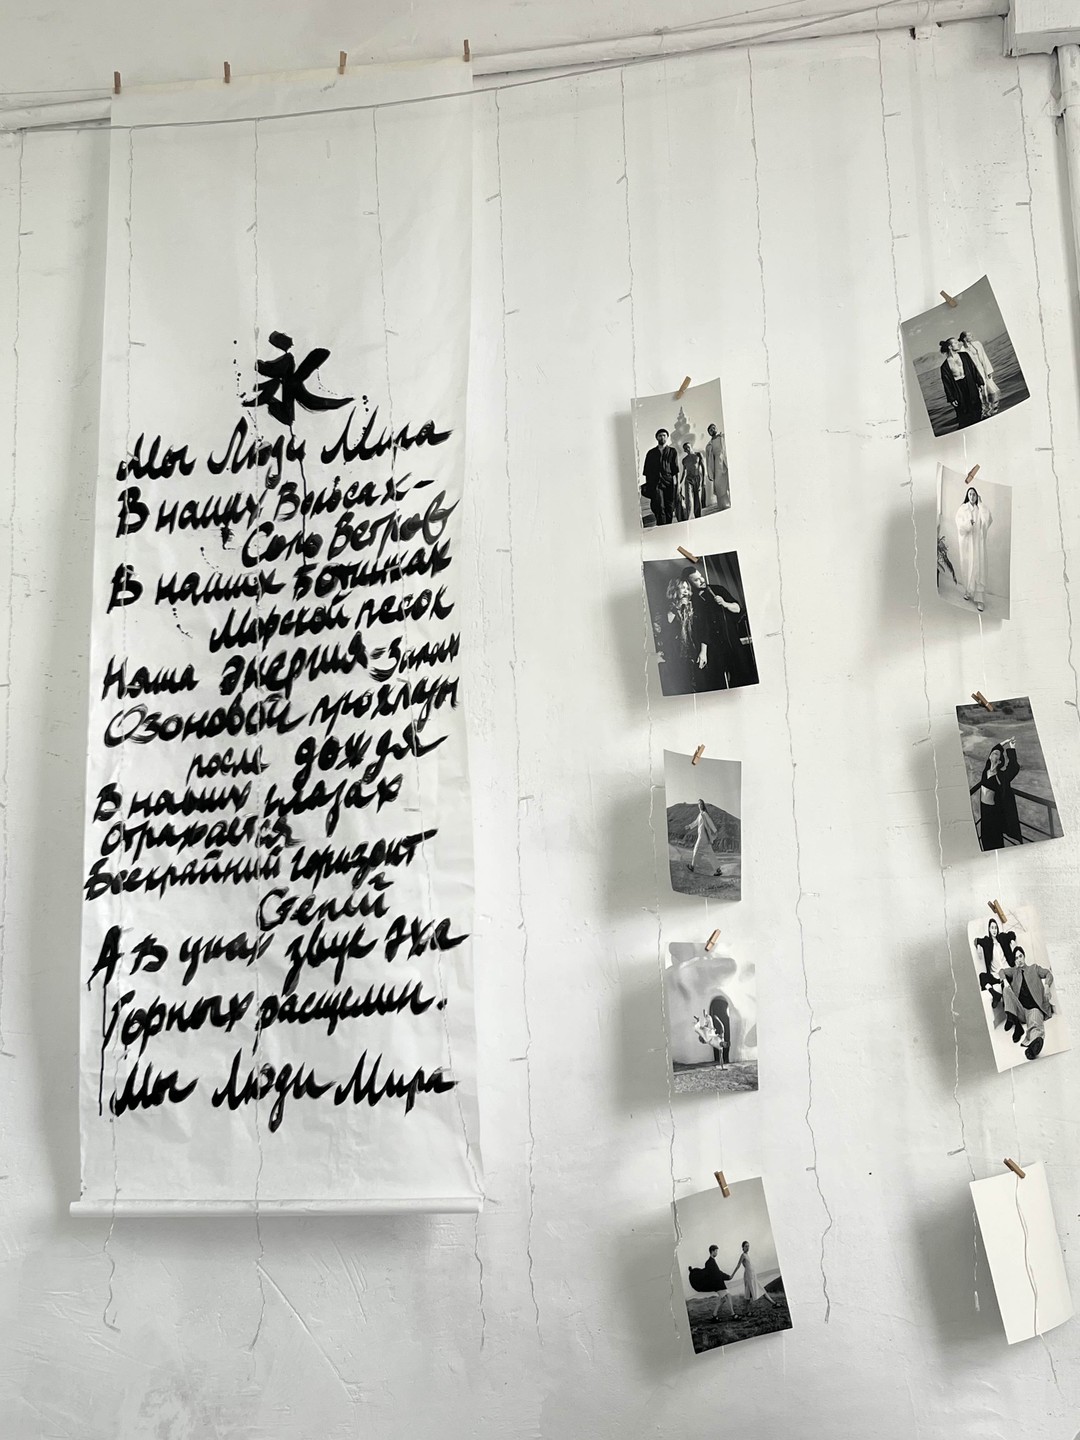 永
Мы Люди Мира
В наших Волосах-
Соло Ветров
В наших Ботинках
Морской песок
Наша Энергия-Запах
Озоновой прохлады
после дождя
В наших глазах
Отражается
Бескрайний горизонт
Степей
А В ушах звук Эха
Горных расщелин.
Мы Люди Мира